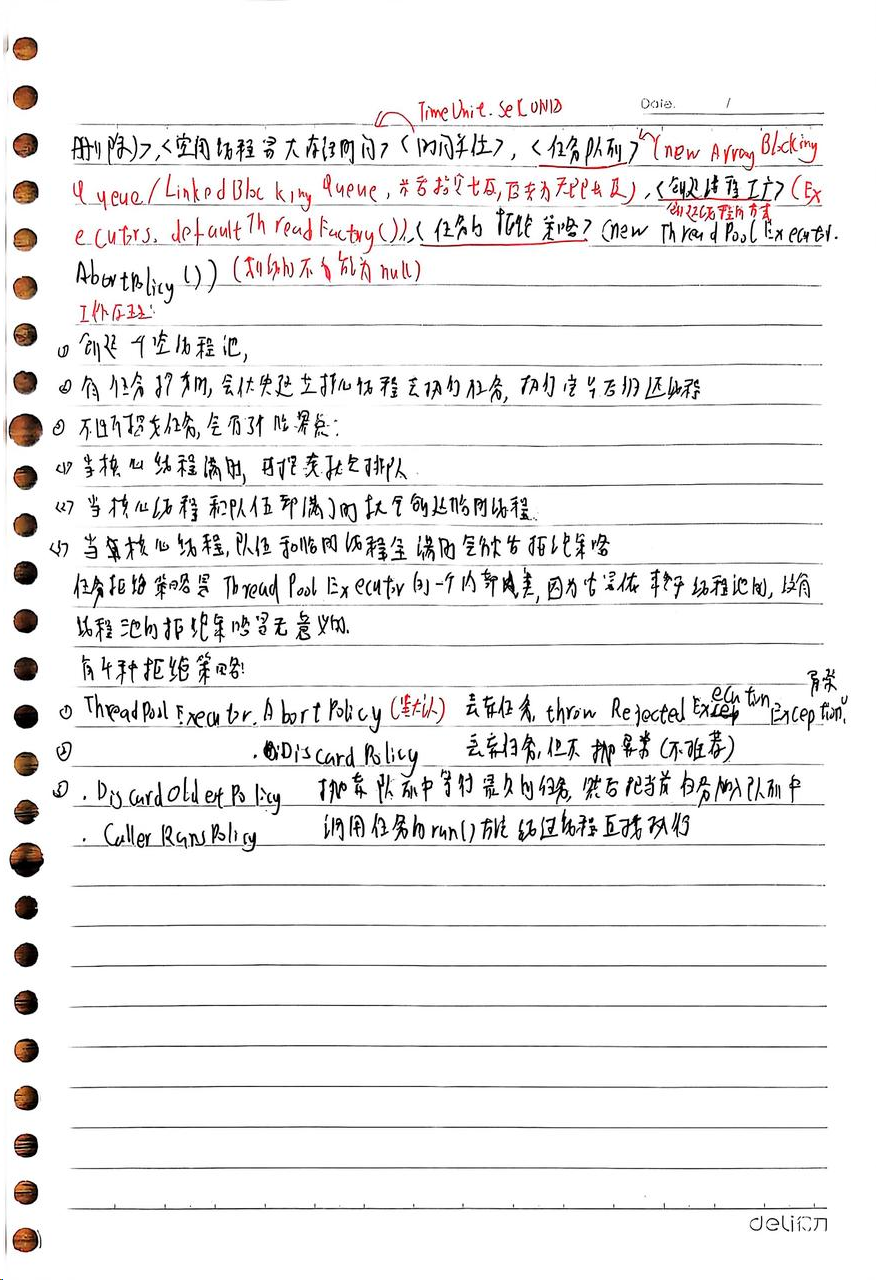 TimeUnit.SECOND
Date. /
删除)>,<空闲线程最大存活时间><时间单位>,<任务队列>(new Array Blocking
Queue/Linked Blocking Queue,若指定长度,否则为无界长度),<创建线程工厂>(Ex
创建线程的方式
ecutors.defaultThreadFactory()),<任务的拒绝策略>(new ThreadPoolExecutor.
AbortPolicy())(不能为null)
工作原理:
① 创建一个空线程池,
② 有任务提交时,会优先建立核心线程去执行任务,执行完毕后归还线程
③ 不断提交任务,会有3个临界点:
<1> 当核心线程满时,再提交就会排队
<2> 当核心线程和队伍都满了时就会创建临时线程.
<3> 当核心线程,队伍和临时线程全满时会触发拒绝策略
任务拒绝策略是ThreadPoolExecutor的一个内部类,因为它是依赖于线程池的,没有
线程池的拒绝策略是无意义的.
有4种拒绝策略:
① ThreadPoolExecutor.AbortPolicy(默认) 丢弃任务,throw RejectedExecutionException异常
② .DiscardPolicy 丢弃任务,但不抛异常(不推荐)
③ .DiscardOldetPolicy 抛弃队列中等待最久的任务,然后把当前任务加入队列中
.CallerRunsPolicy 调用任务的run()方法绕过线程直接执行
deli得力